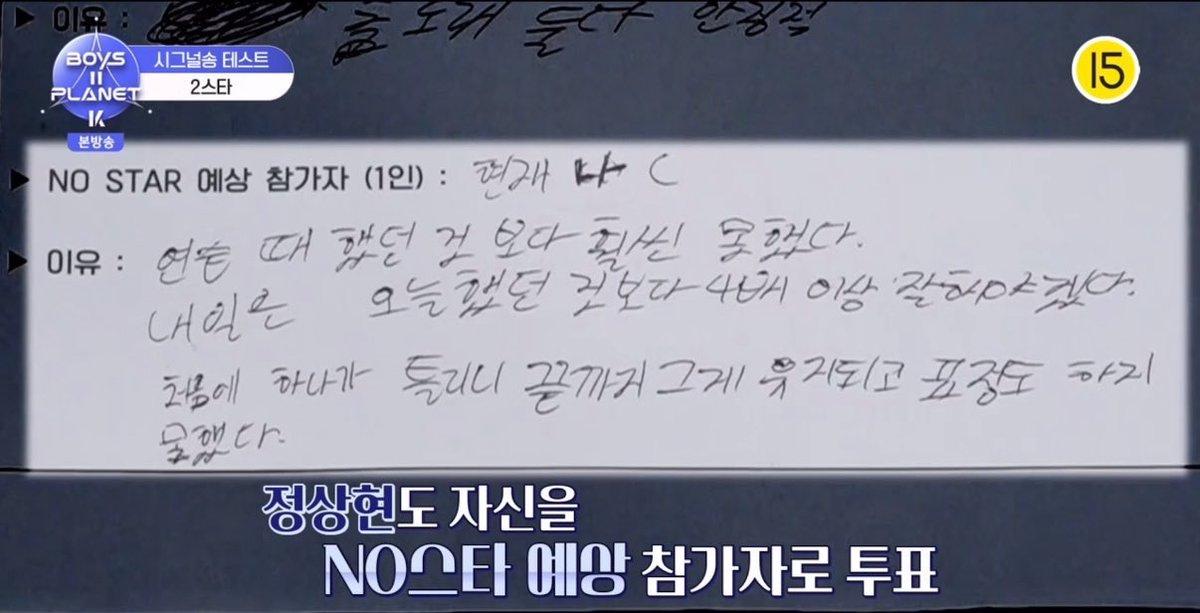 ▶ 이유 : 춤 노래 둘다 안정적
BOYS
II
PLANET
K
본방송
시그널송 테스트
2스타
15
▶ NO STAR 예상 참가자 (1인) : 현재 나 (
▶ 이유 : 연습 때 했던 것 보다 훨씬 못했다.
내일은 오늘했던 것보다 4배 이상 잘해야겠다.
처음에 하나가 틀리니 끝까지 그게 유지되고 표정도 하지
못했다.
정상현도 자신을
NO스타 예상 참가자로 투표